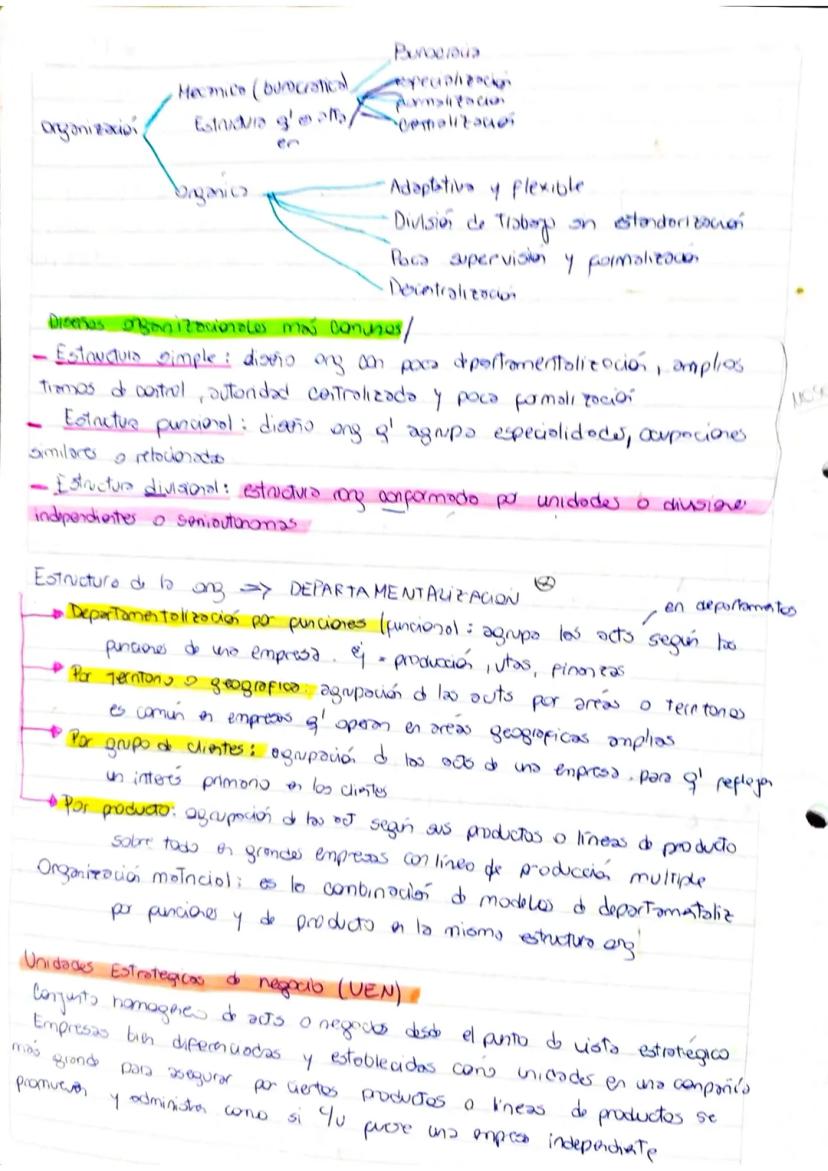 Burocracia
Mecánico (burocratico)
especialización
formalización
Estructura q' es alta
centralización
en
organización
organico
Adaptativa y flexible
División de Trabajo sin estandarización
Poca supervisión y formalización
Decentralización
Diseños organizacionales más comunes/
- Estructura simple: diseño org con poca dpartamentalización, amplios
tramos d control, autoridad centralizada y poca formalización
- Estructura funcional: diseño org q' agrupa especialidades, ocupaciones
similares o relacionadas
- Estructura divisional: estructura org conformada por unidades o divisiones
independientes o semiautonomas
Estructura de la org => DEPARTAMENTALIZACION
en departamentos
Departamentalización por funciones (funcional: agrupa las acts según las
funciones de una empresa. ej = producción, vtas, finanzas
Por Territorio o geografica: agrupación d las acts por areas o territorios
es común en empresas q' operan en areas geograficas amplias
Por grupo de clientes: agrupación d las acts de una empresa. para q' reflejen
un interés primario en los clientes
Por producto: agrupación d las act según sus productos o líneas de producto
sobre todo en grandes empresas con línea de producción multiple
Organización matricial: es la combinación d modelos d departamentaliz
por funciones y de producto en la misma estructura org
Unidades Estrategicas d negocio (UEN)
Conjunto homogeneo de acts o negocios desde el punto d vista estratégico
Empresas bien diferenciadas y establecidas como unidades en una compañia
más grande para asegurar por ciertos productos o lineas de productos se
promuevan y administren como si c/u fuese una empresa independiente